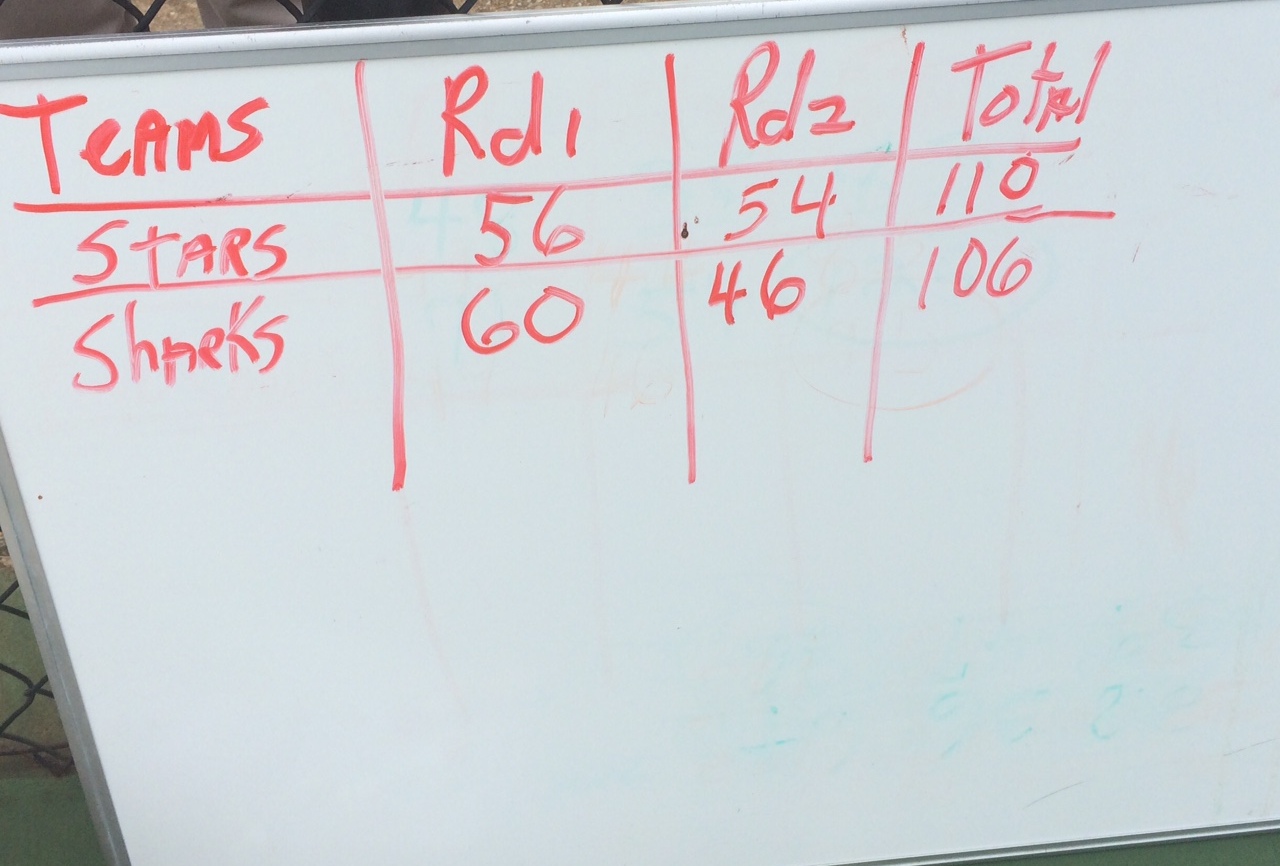 TEAMS Rd1 Rd2 Total
STARS 56 54 110
Sharks 60 46 106